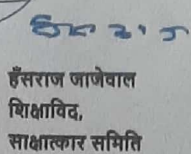 हँसराज जाजेवाल
शिक्षाविद,
साक्षात्कार समिति